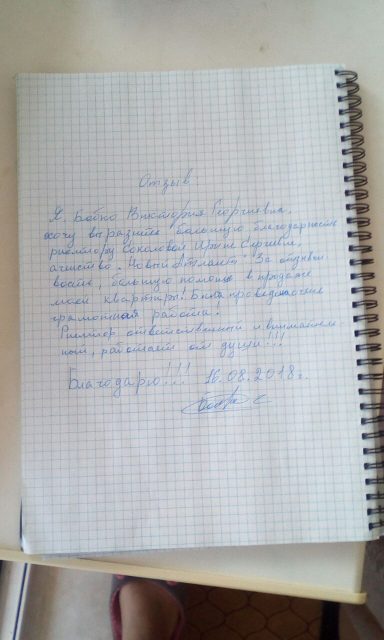 Отзыв.
Я, Бабко Виктория Георгиевна,
хочу выразить большую благодарность
риелтору Соколовой Ирине Сергеевне,
агенство "Новый Атлант" За отзывчи
вость, большую помощь в продаже
моей квартиры! Была проведена очень
грамотная работа.
Риелтор ответственный и вниматель
ный, работает от души!!!
Благодарю!!! 16.08.2018г.